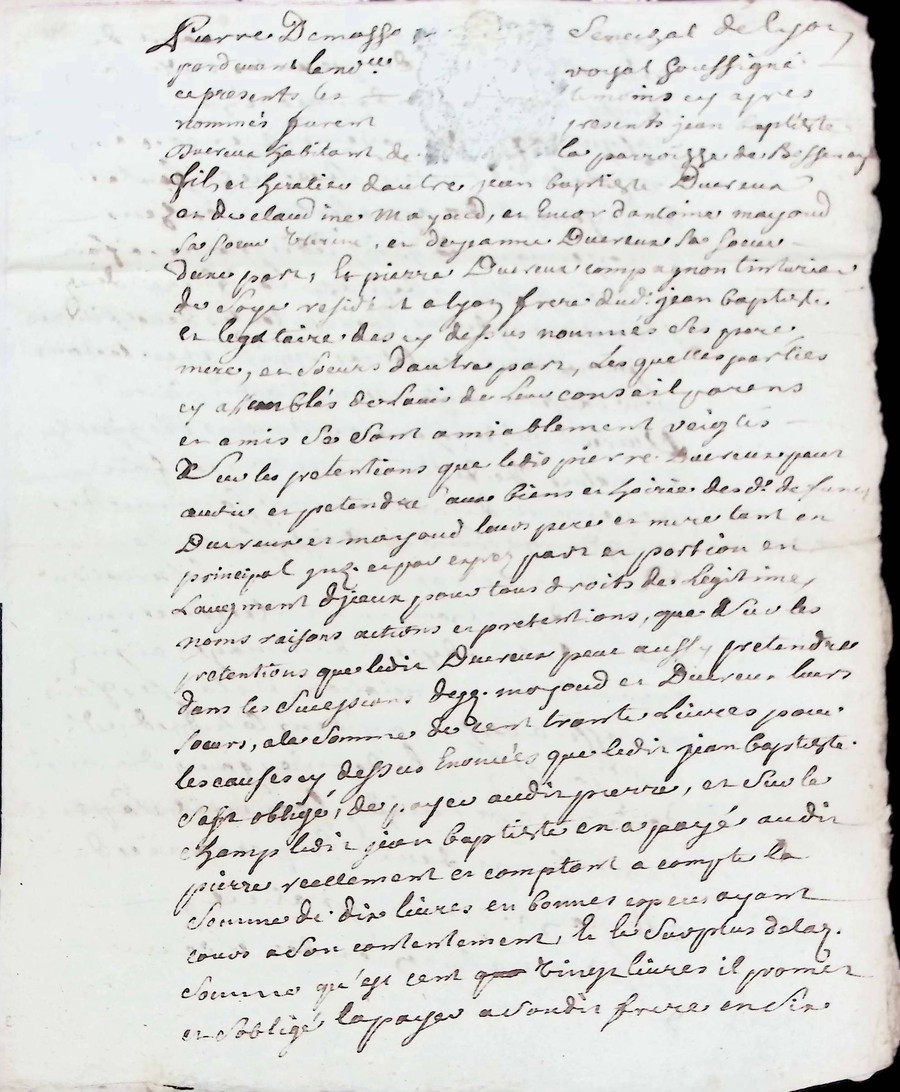 Pierre Demasse Senechal de Lyon
pardevant le no.re royal soussigné
et presents les temoins cy apres
nommés furent presents jean baptiste
Ducreux habitant de la parroisse de Bessenay
fils et heritier dautre jean baptiste Ducreux
et de claudine Mayoud, et encor dantoine mayoud
sa soeur et de jeanne Ducreux sa soeur
dune part, Et pierre Ducreux compagnon tinturier
de soye resident a lyon frere dud. jean baptiste
et legataire des cy dessus nommés ses pere
mere, et soeurs dautre part, Les quelles parties
cy assemblés de lavis de leur conseil parens
et amis se sont amiablement reiglés
sur les pretentions que ledit pierre Ducreux peut
avoir et petendre aux biens et hoirie des d. defunts
Ducreux et mayoud leurs pere et mere tant en
principal qu'en part et portion en
Laugment de jeaux pour tous droits de Legitime,
noms raisons actions et pretentions, que sur les
pretentions que ledit Ducreux peut aussy pretendre
dans les sucessions desq. mayoud et Ducreux leurs
soeurs, a la somme de cent trante Livres pour
les causes cy dessus Enoncées que ledit jean baptiste
sest obligé, de payer audit pierre, et sur le
champ ledit jean baptiste en a payé audit
pierre reellement et comptant a compte la
somme de dix livres en bonnes especes ayant
cours a son contentement, Et le surplus de laq.
somme qu'est cent vingt livres il promet
et s'obligé la payer a sondit frere en six